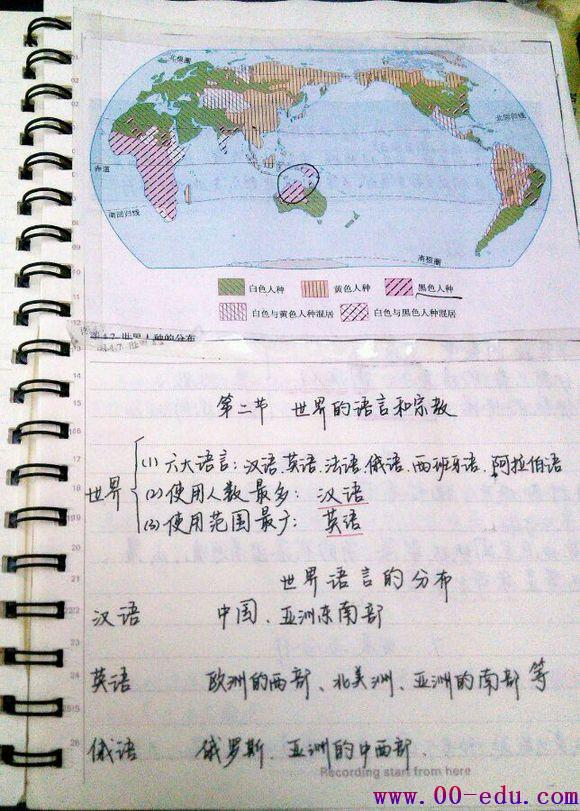 北极圈
北回归线
赤道
南回归线
南极圈
白色人种 黄色人种 黑色人种
白色与黄色人种混居 白色与黑色人种混居
图4.7 世界人种的分布
第二节 世界的语言和宗教
世界
(1) 六大语言:汉语、英语、法语、俄语、西班牙语、阿拉伯语
(2) 使用人数最多: 汉语
(3) 使用范围最广: 英语
世界语言的分布
汉语 中国、亚洲东南部
英语 欧洲的西部、北美洲、亚洲的南部等
俄语 俄罗斯、亚洲的中西部
Recording start from here
www.00-edu.com